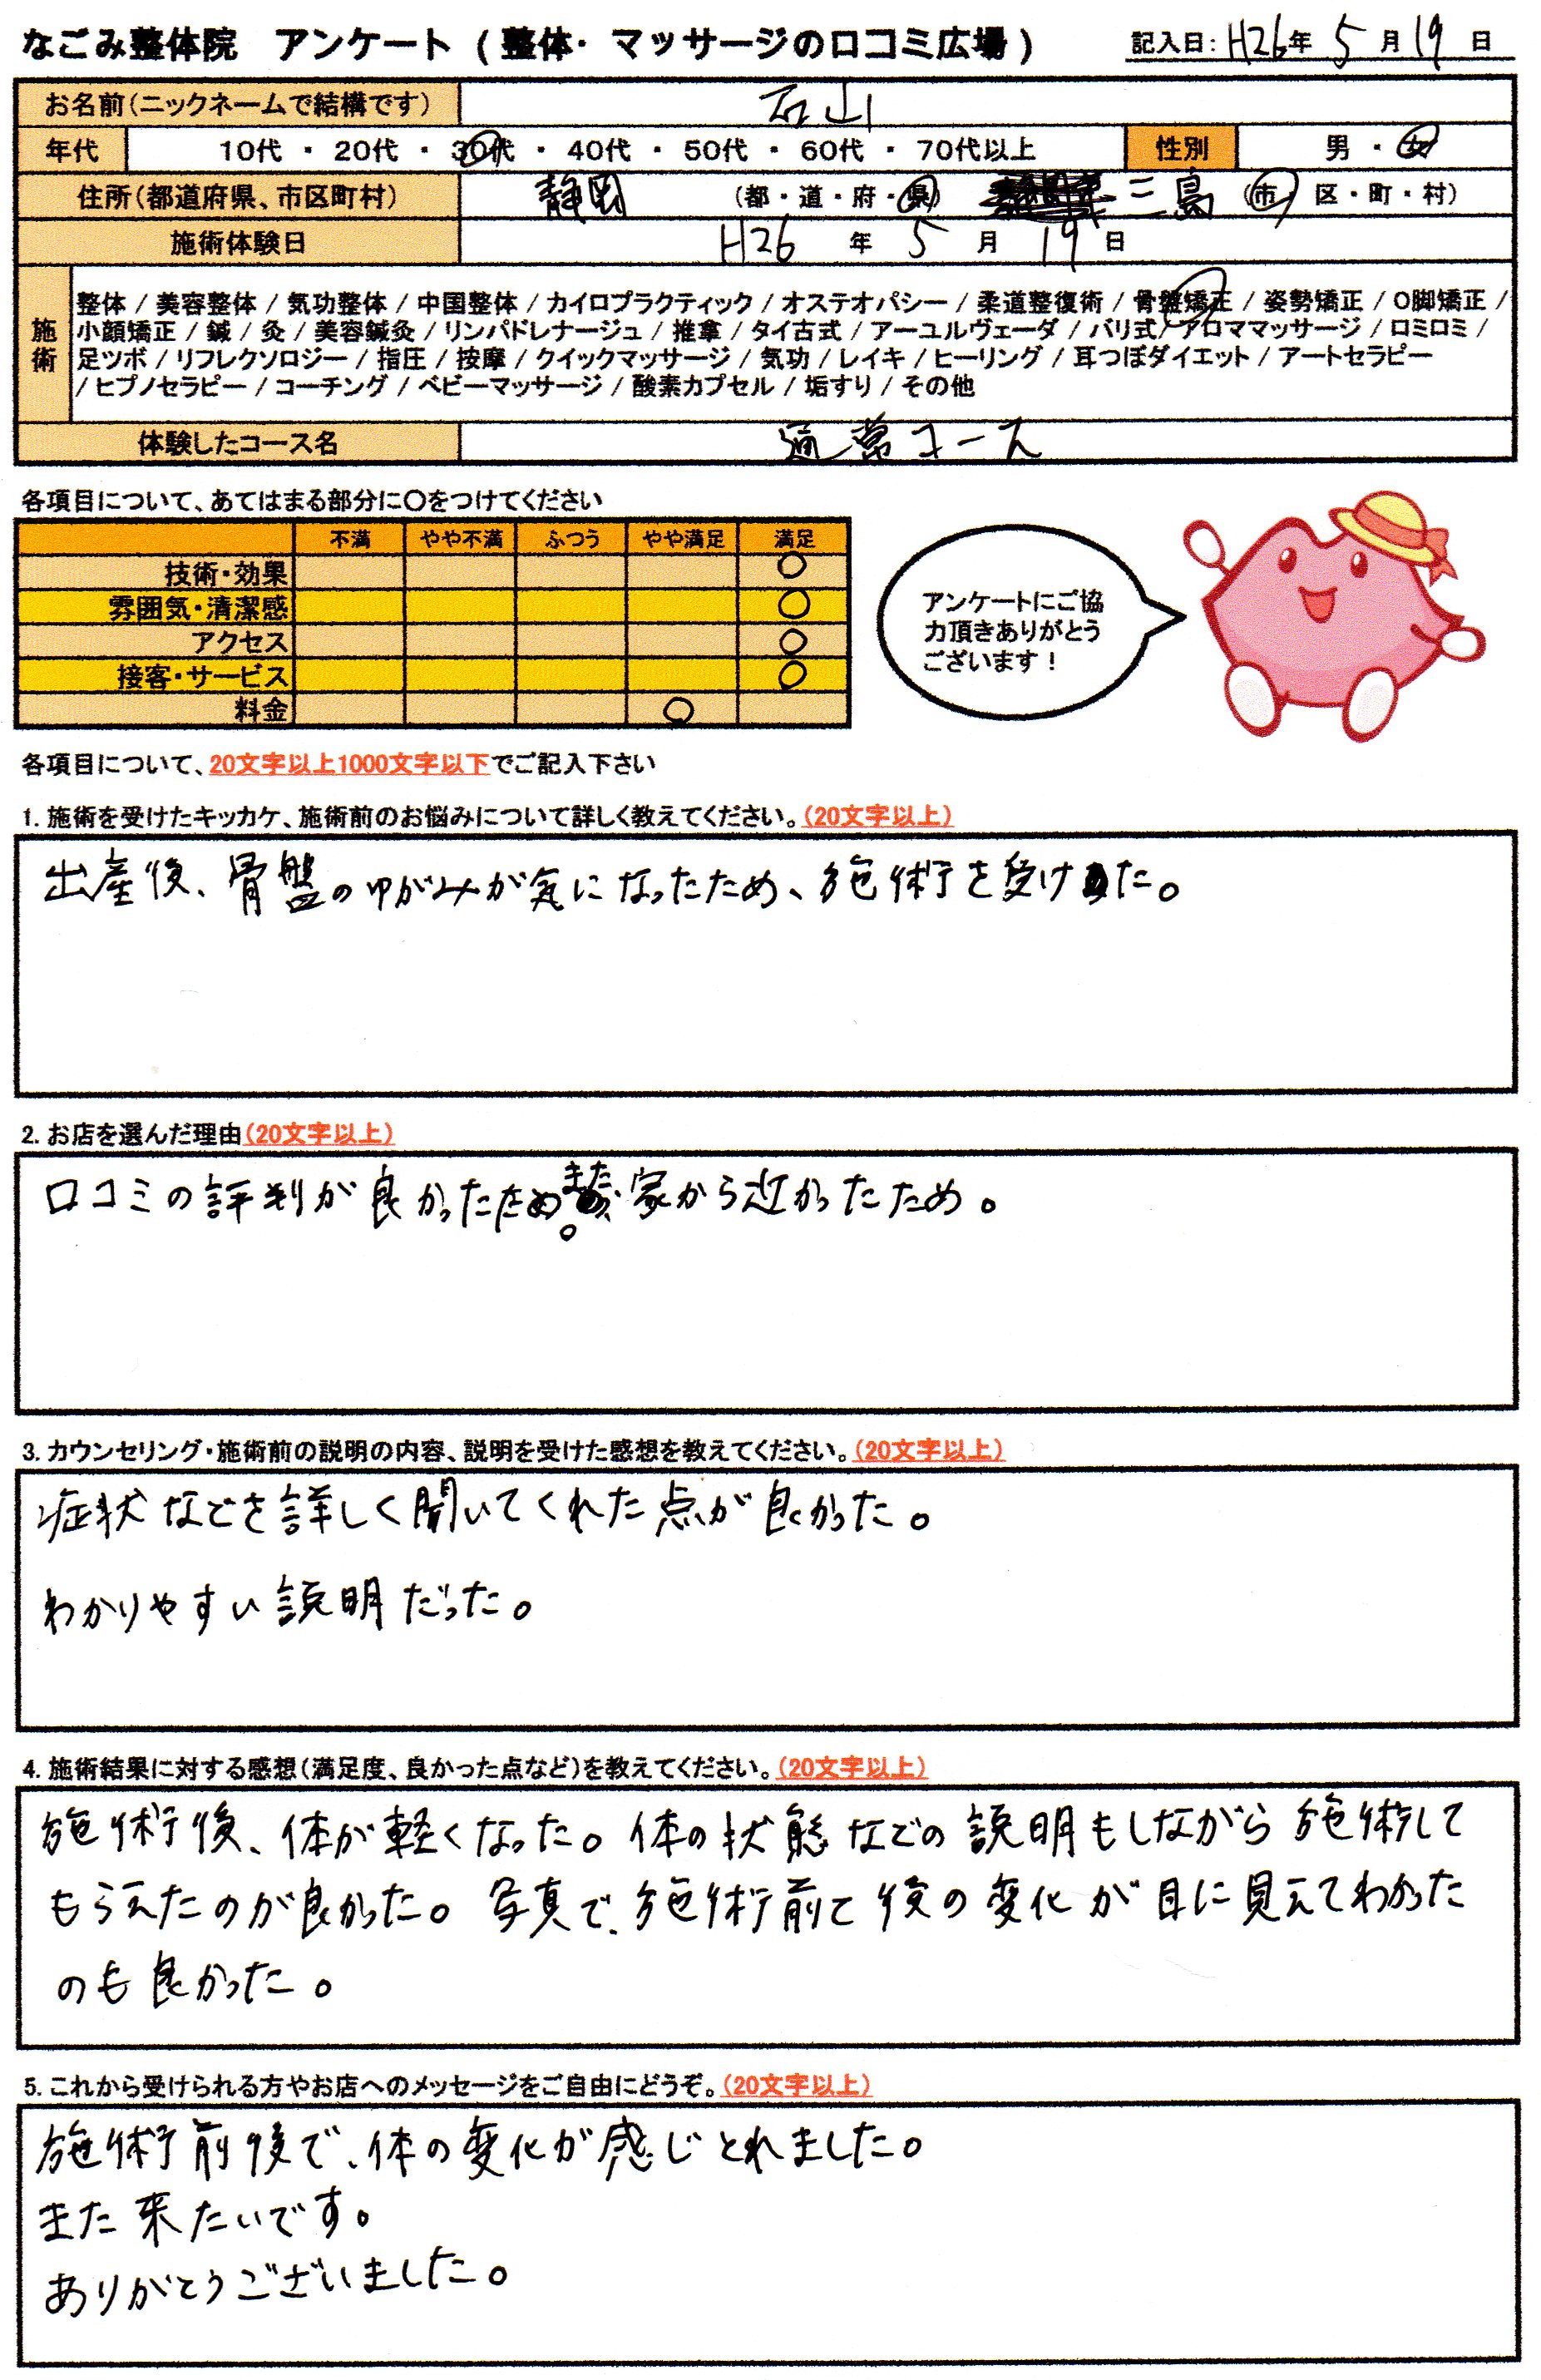 なごみ整体院 アンケート (整体・マッサージの口コミ広場) 記入日:H26年 5月19日
お名前(ニックネームで結構です) 石山
年代 10代 ・ 20代 ・ 30代 ・ 40代 ・ 50代 ・ 60代 ・ 70代以上 性別 男 ・ 女
住所(都道府県、市区町村) 静岡 (都・道・府・県) 三島 (市・区・町・村)
施術体験日 H26 年 5 月 19 日
施術
整体 / 美容整体 / 気功整体 / 中国整体 / カイロプラクティック / オステオパシー / 柔道整復術 / 骨盤矯正 / 姿勢矯正 / O脚矯正 /
小顔矯正 / 鍼 / 灸 / 美容鍼灸 / リンパドレナージュ / 推拿 / タイ古式 / アーユルヴェーダ / バリ式 / アロママッサージ / ロミロミ /
足ツボ / リフレクソロジー / 指圧 / 按摩 / クイックマッサージ / 気功 / レイキ / ヒーリング / 耳つぼダイエット / アートセラピー
/ ヒプノセラピー / コーチング / ベビーマッサージ / 酸素カプセル / 垢すり / その他
体験したコース名 通常コース
各項目について、あてはまる部分に○をつけてください
不満 やや不満 ふつう やや満足 満足
技術・効果 ○
雰囲気・清潔感 ○
アクセス ○
接客・サービス ○
料金 ○
アンケートにご協
力頂きありがとう
ございます!
各項目について、20文字以上1000文字以下でご記入下さい
1. 施術を受けたキッカケ、施術前のお悩みについて詳しく教えてください。(20文字以上)
出産後、骨盤のゆがみが気になったため、施術を受けた。
2. お店を選んだ理由(20文字以上)
口コミの評判が良かったため。また、家から近かったため。
3. カウンセリング・施術前の説明の内容、説明を受けた感想を教えてください。(20文字以上)
症状などを詳しく聞いてくれた点が良かった。
わかりやすい説明だった。
4. 施術結果に対する感想(満足度、良かった点など)を教えてください。(20文字以上)
施術後、体が軽くなった。体の状態などの説明もしながら施術して
もらえたのが良かった。写真で、施術前と後の変化が目に見えてわかった
のも良かった。
5. これから受けられる方やお店へのメッセージをご自由にどうぞ。(20文字以上)
施術前後で、体の変化が感じとれました。
また来たいです。
ありがとうございました。